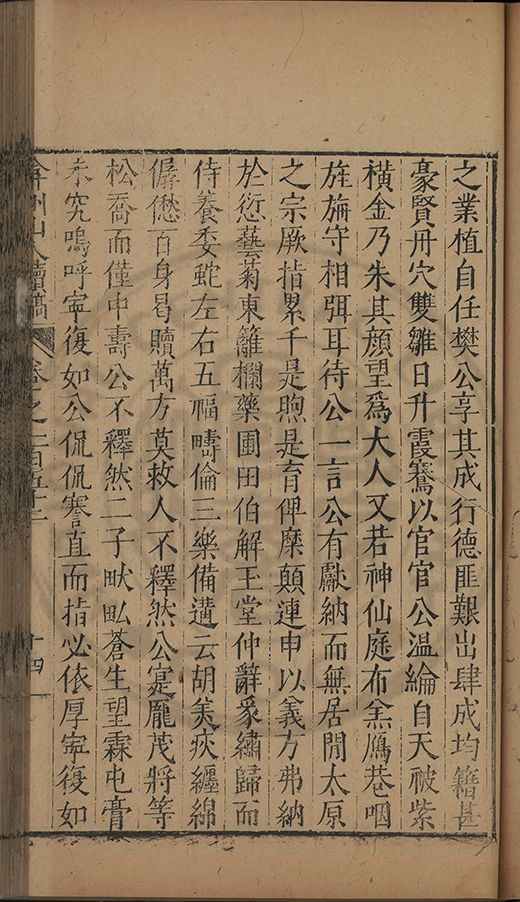 之業植自任樊公享其成行德匪艱出肆成均籍甚
豪賢丹穴雙雛日升霞騫以官官公溫綸自天被紫
橫金乃朱其顏望爲大人又若神仙庭布羔鴈巷咽
旌旃守相弭耳待公一言公有獻納而無居閒太原
之宗厥指累千是煦是育俾糜顛連申以義方弗納
於愆藝菊東籬欄藥圃田伯解玉堂仲辭豸繡歸而
侍養委蛇左右五福疇倫三樂備遘云胡美疢纏綿
僝僽百身曷贖萬方莫救人不釋然公寔龎茂將等
松喬而僅中壽公不釋然二子畎畝蒼生望霖屯膏
未究嗚呼寧復如公侃侃謇直而指必依厚寧復如
弇州山人續稿 卷之一百五十三 十四